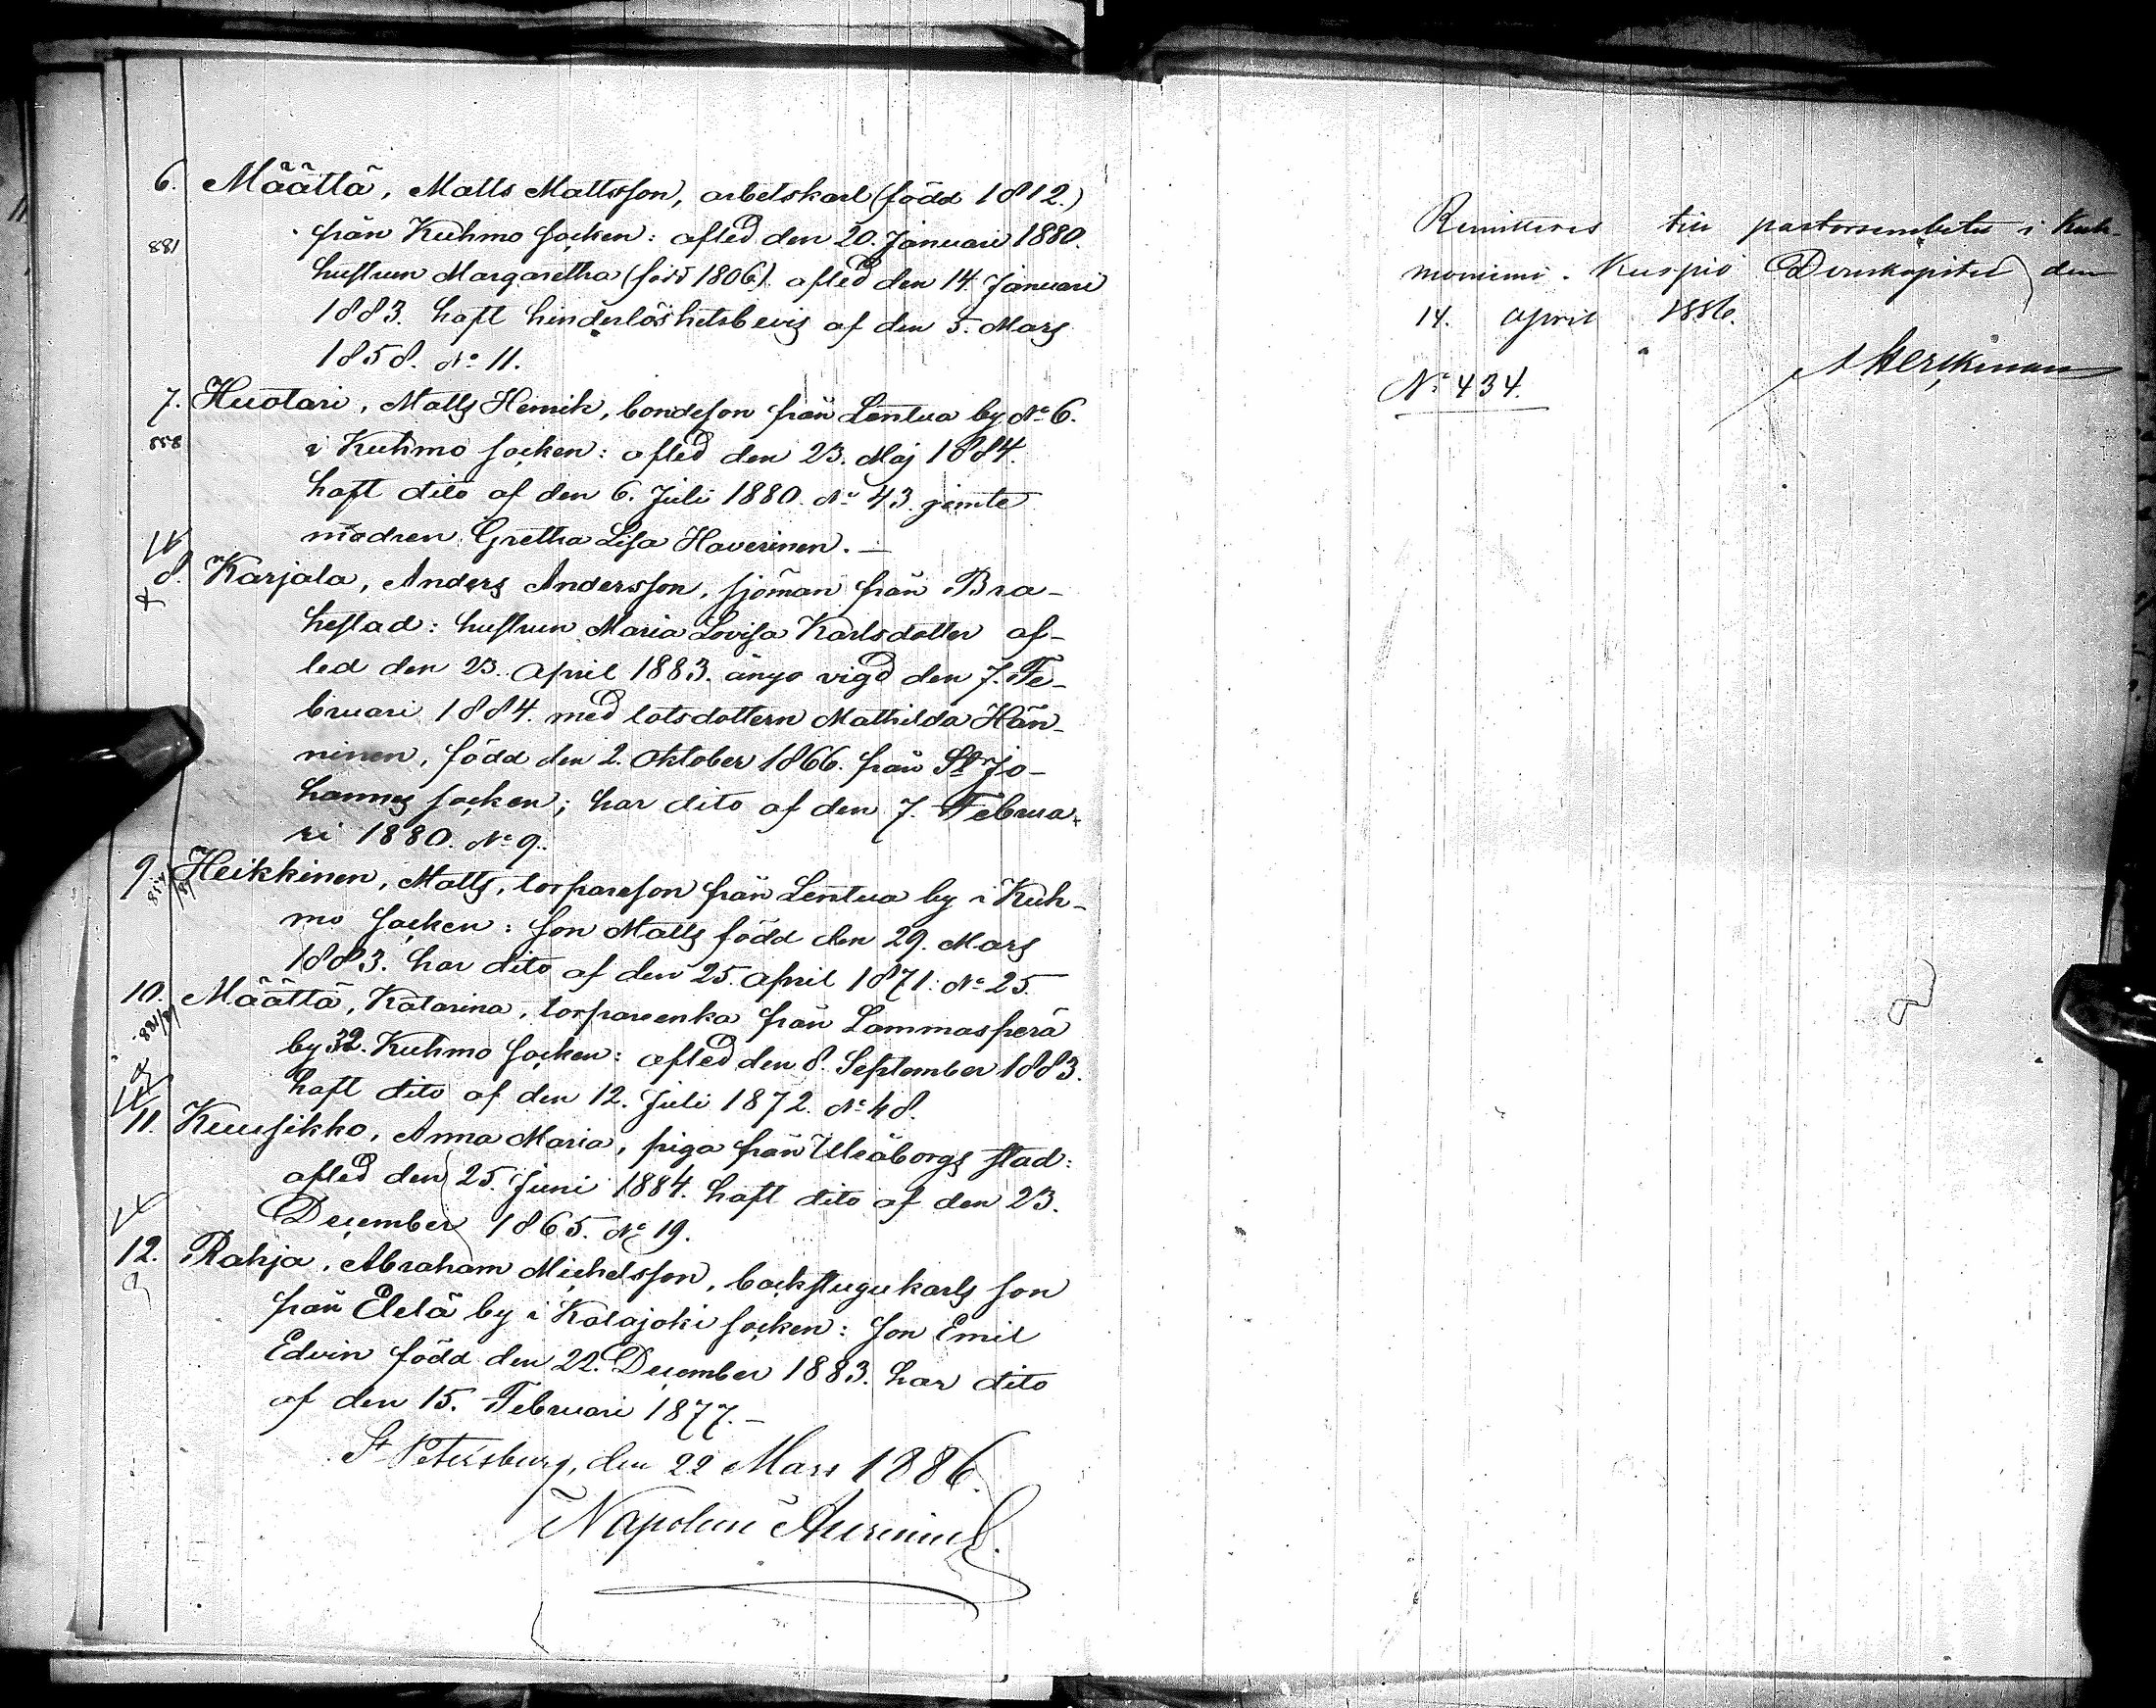 6. Määttä, Matts Mattsson, arbetskarl (född 1812.)
från Kuhmo socken: afled den 20. Januari 1880.
881
hustrun Margaretha (född 1806). afled den 14. Januari
1883. haft hinderlöshetsbevis af den 5. Mars
1858. No 11.
7. Huotari, Matts Henrik, bondeson från Lentua by No 6.
858
i Kuhmo socken: afled den 23. Maj 1884.
haft dito af den 6. Juli 1880. No 43. jemte
modren Gretha Lisa Haverinen. —
8. Karjala, Anders Andersson, sjöman från Bra-
hestad: hustrun Maria Lovisa Karlsdotter af-
led den 23. April 1883. ånyo vigd den 7. Fe-
bruari 1884. med lotsdottern Mathilda Hän-
ninen, född den 2. Oktober 1866. från St Jo-
hannes socken; har dito af den 7. Februa-
ri 1880. No 9.
9. Heikkinen, Matts, torpareson från Lentua by i Kuh-
mo socken: son Matts född den 29. Mars
1883. har dito af den 25. April 1871. No 25.
10. Määttä, Katarina, torpareenka från Lammasperä
by 32. Kuhmo socken: afled den 8. September 1883.
haft dito af den 12. Juli 1872. No 48.
11. Kuusikko, Anna Maria, piga från Uleåborgs stad:
afled den 25. Juni 1884. haft dito af den 23.
December 1865. No 19.
12. Rahja, Abraham Michelsson, backstugukarls son
från Etelä by i Kalajoki socken: son Emil
Edvin född den 22. December 1883. har dito
af den 15. Februari 1877. —
St Petersburg, den 22 Mars 1886.
Napoleon
Remitteras till pastorsembetet i Kuh-
moniemi. Kuopio Domkapitel den
14. April 1886.
No 434.